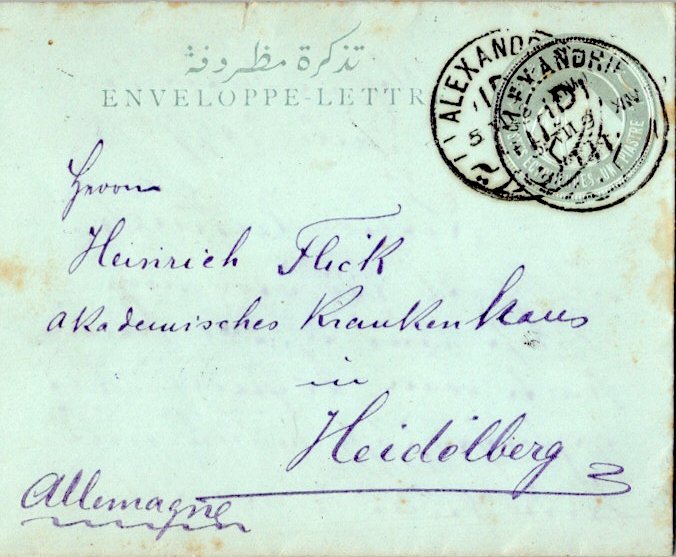 تذكرة مظروفة
ENVELOPPE-LETTR
ALEXANDR
ALEXANDRIE
UNE PIASTRE
Herrn
Heinrich Flick
akademisches Krankenhaus
in
Heidelberg
Allemagne